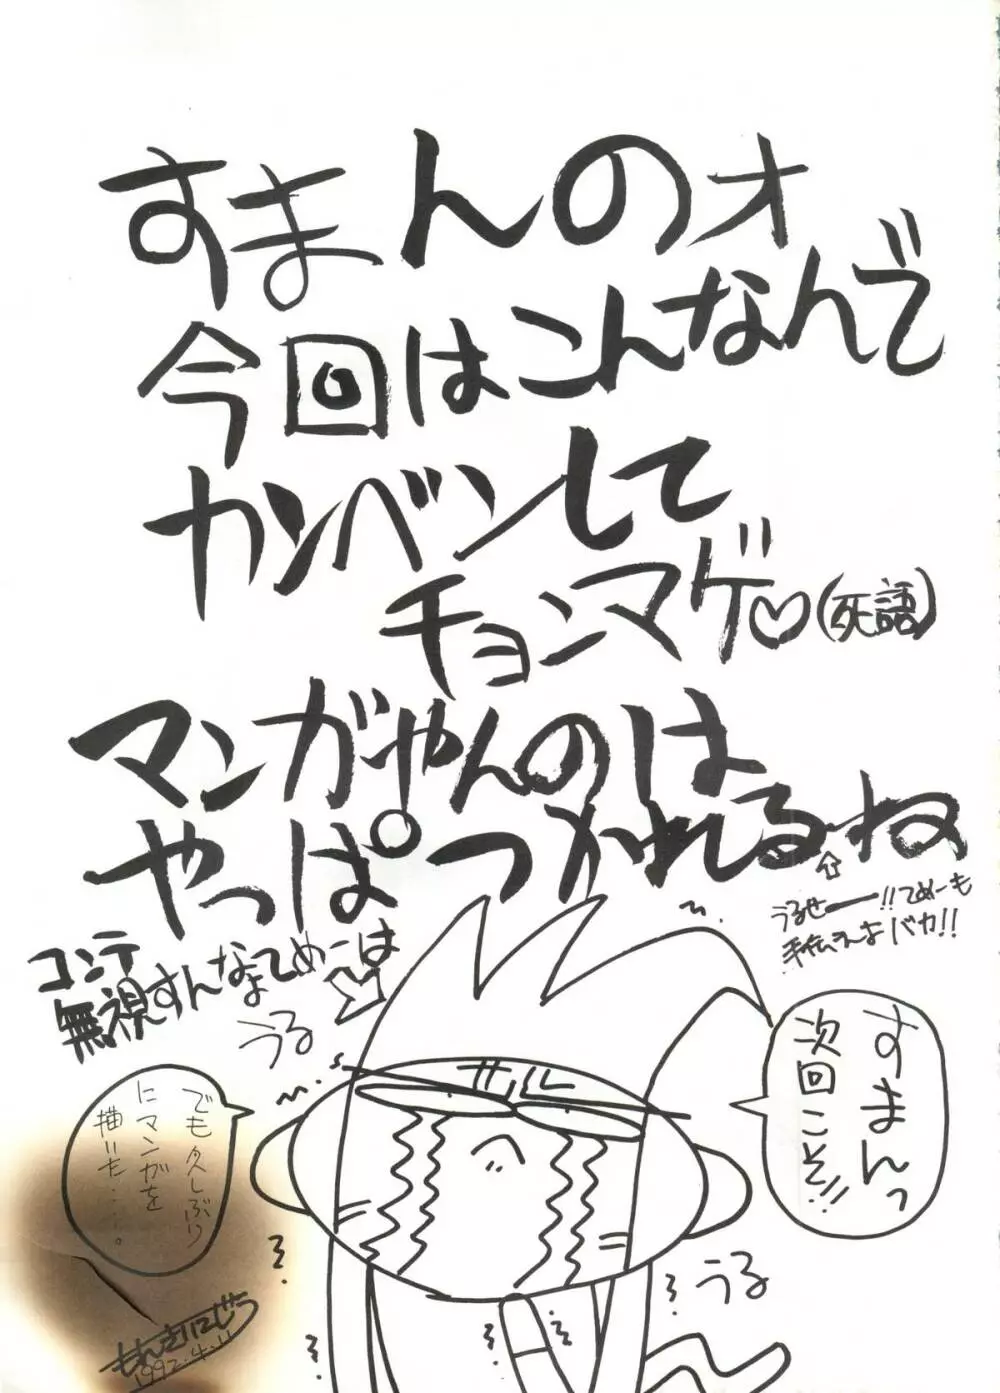 すまんのォ
今回はこんなんで
カンベンして
チョンマゲ♡(死語)
マンガやんのは
やっぱつかれるね
⇧
うるせー!!てめーも
手伝えよバカ!!
コンテ
無視すんなよてめーは
うる
すまんっ
次回こそ!!
でも久しぶり
にマンガを
描いた・・・・。
うる
もんきいにじう
1992.4.11